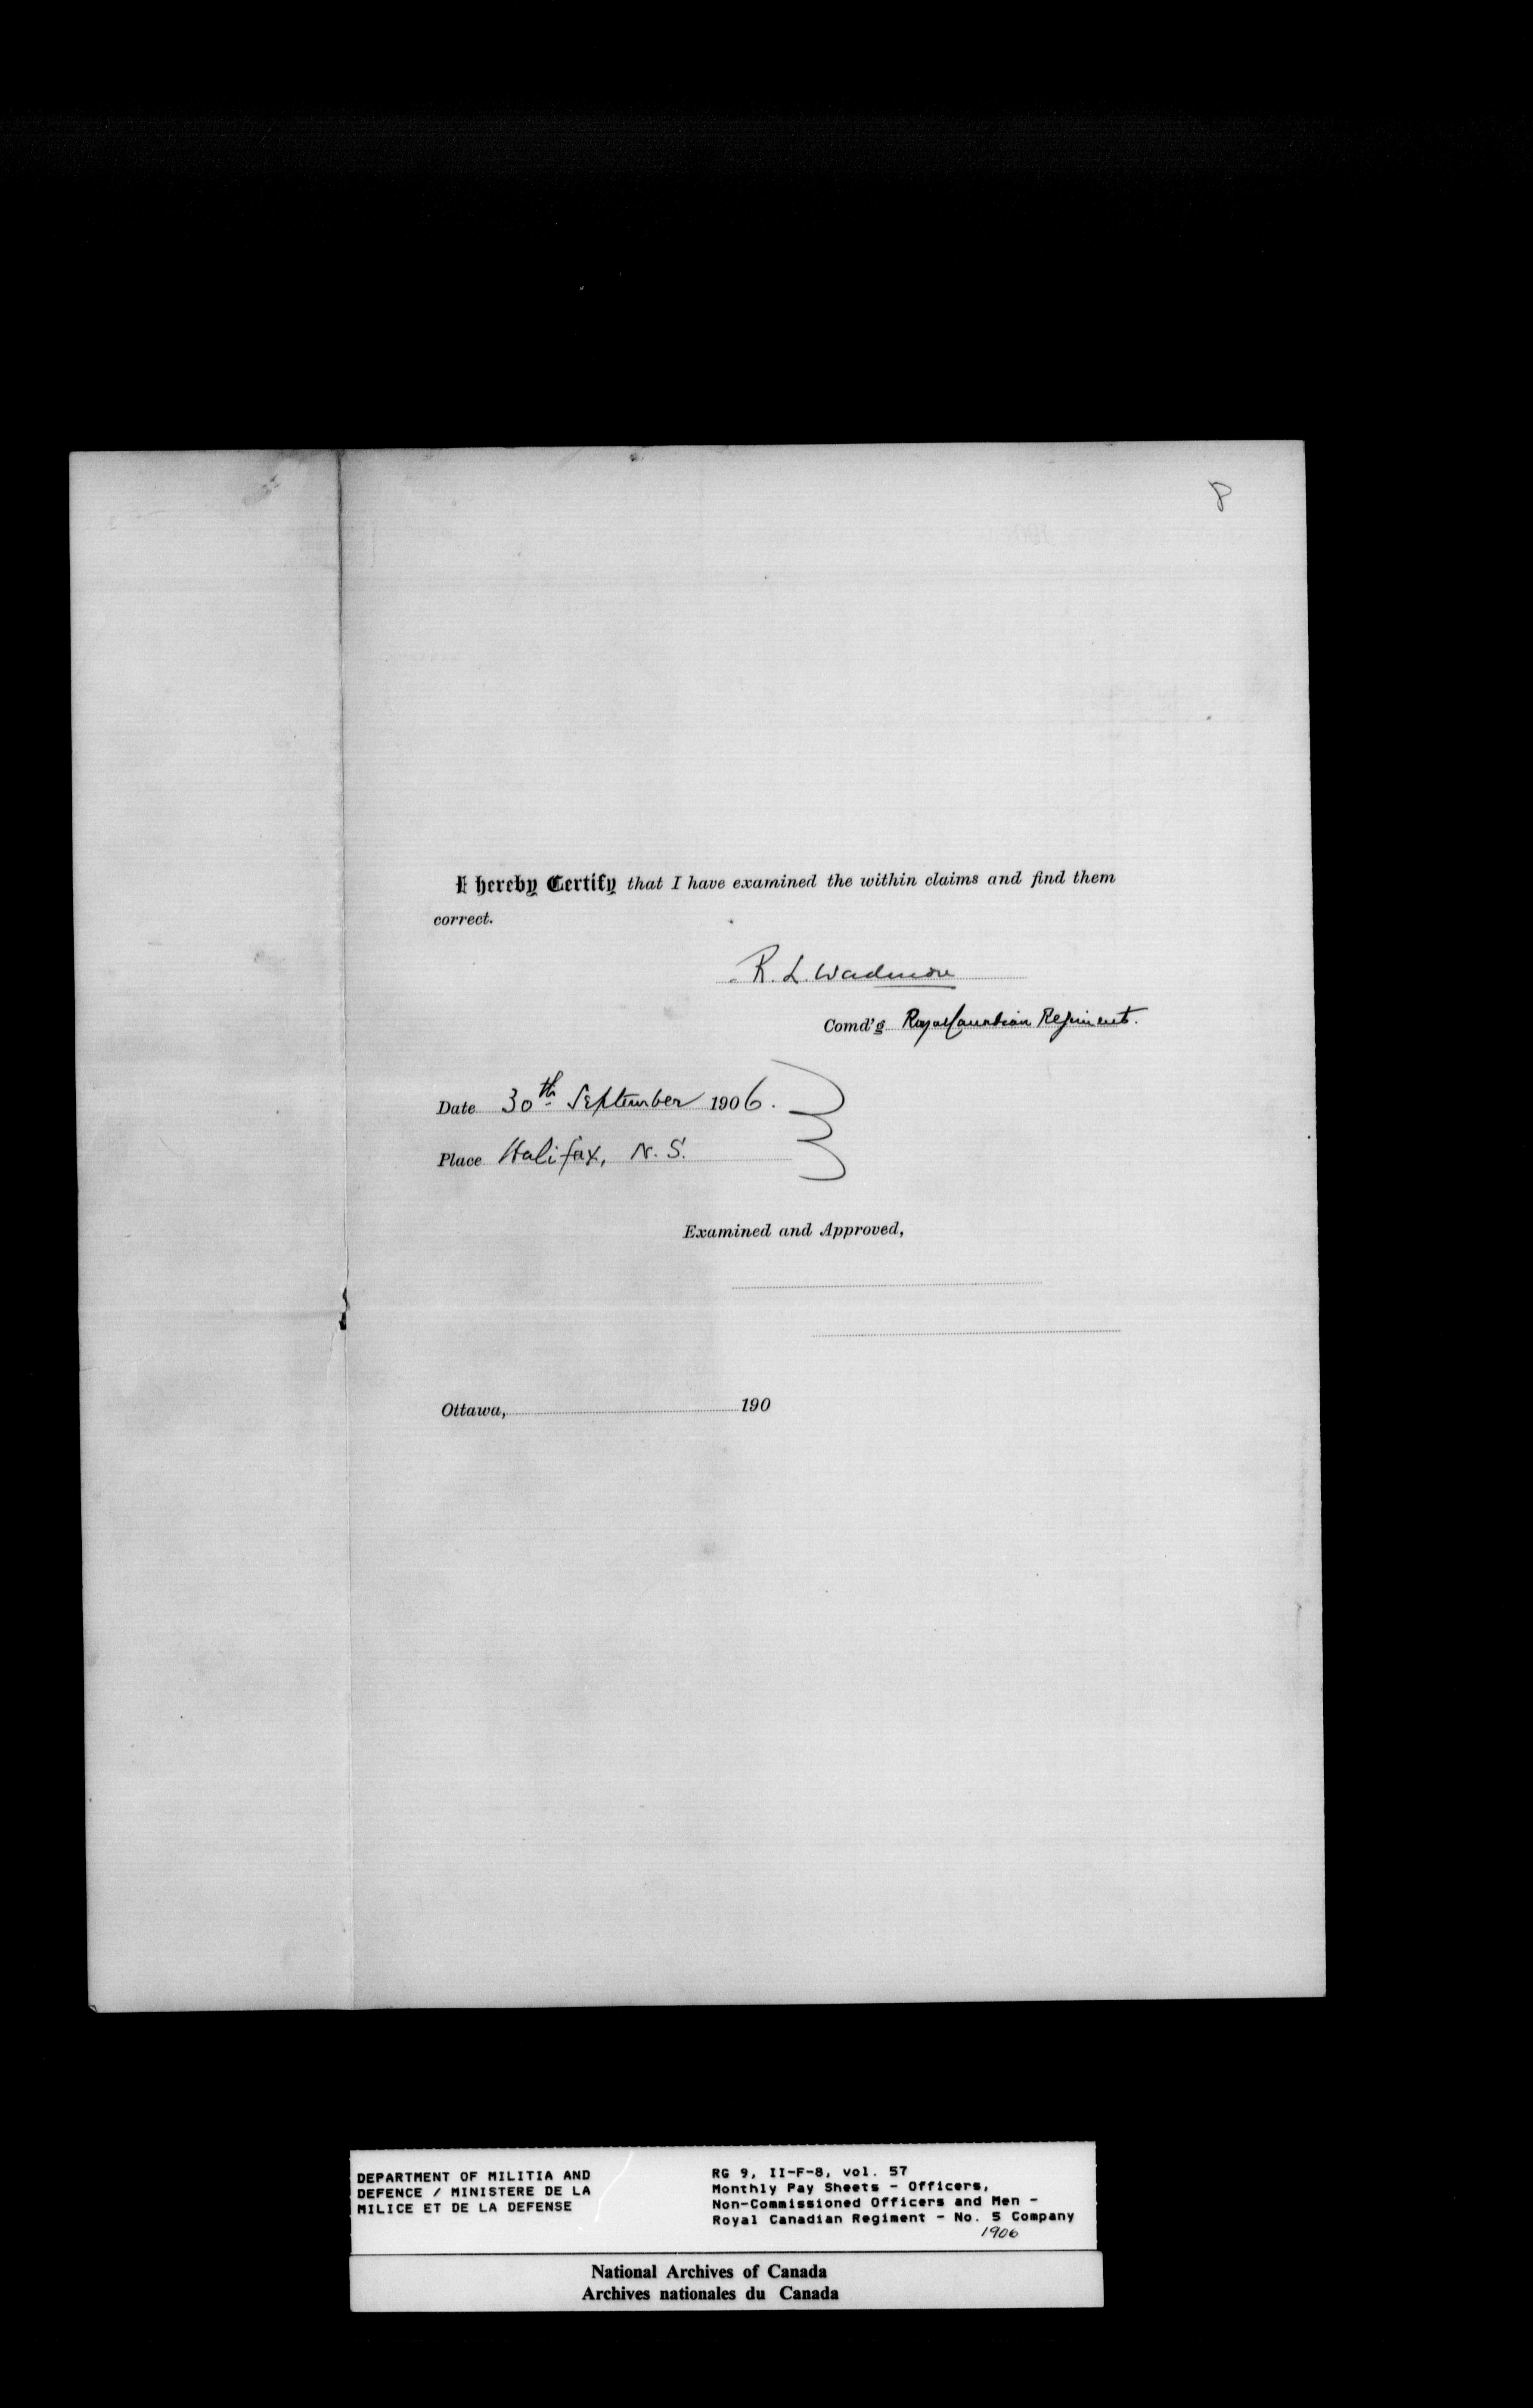 8
I hereby Certify that I have examined the within claims and find them
correct.
R. L. Wadmore
Comd'g Royal Canadian Regiment.
Date 30th September 1906.
Place Halifax, N. S.
Examined and Approved,
Ottawa, 190
DEPARTMENT OF MILITIA AND
DEFENCE / MINISTERE DE LA
MILICE ET DE LA DEFENSE
RG 9, II-F-8, vol. 57
Monthly Pay Sheets - Officers,
Non-Commissioned Officers and Men -
Royal Canadian Regiment - No. 5 Company
1906
National Archives of Canada
Archives nationales du Canada